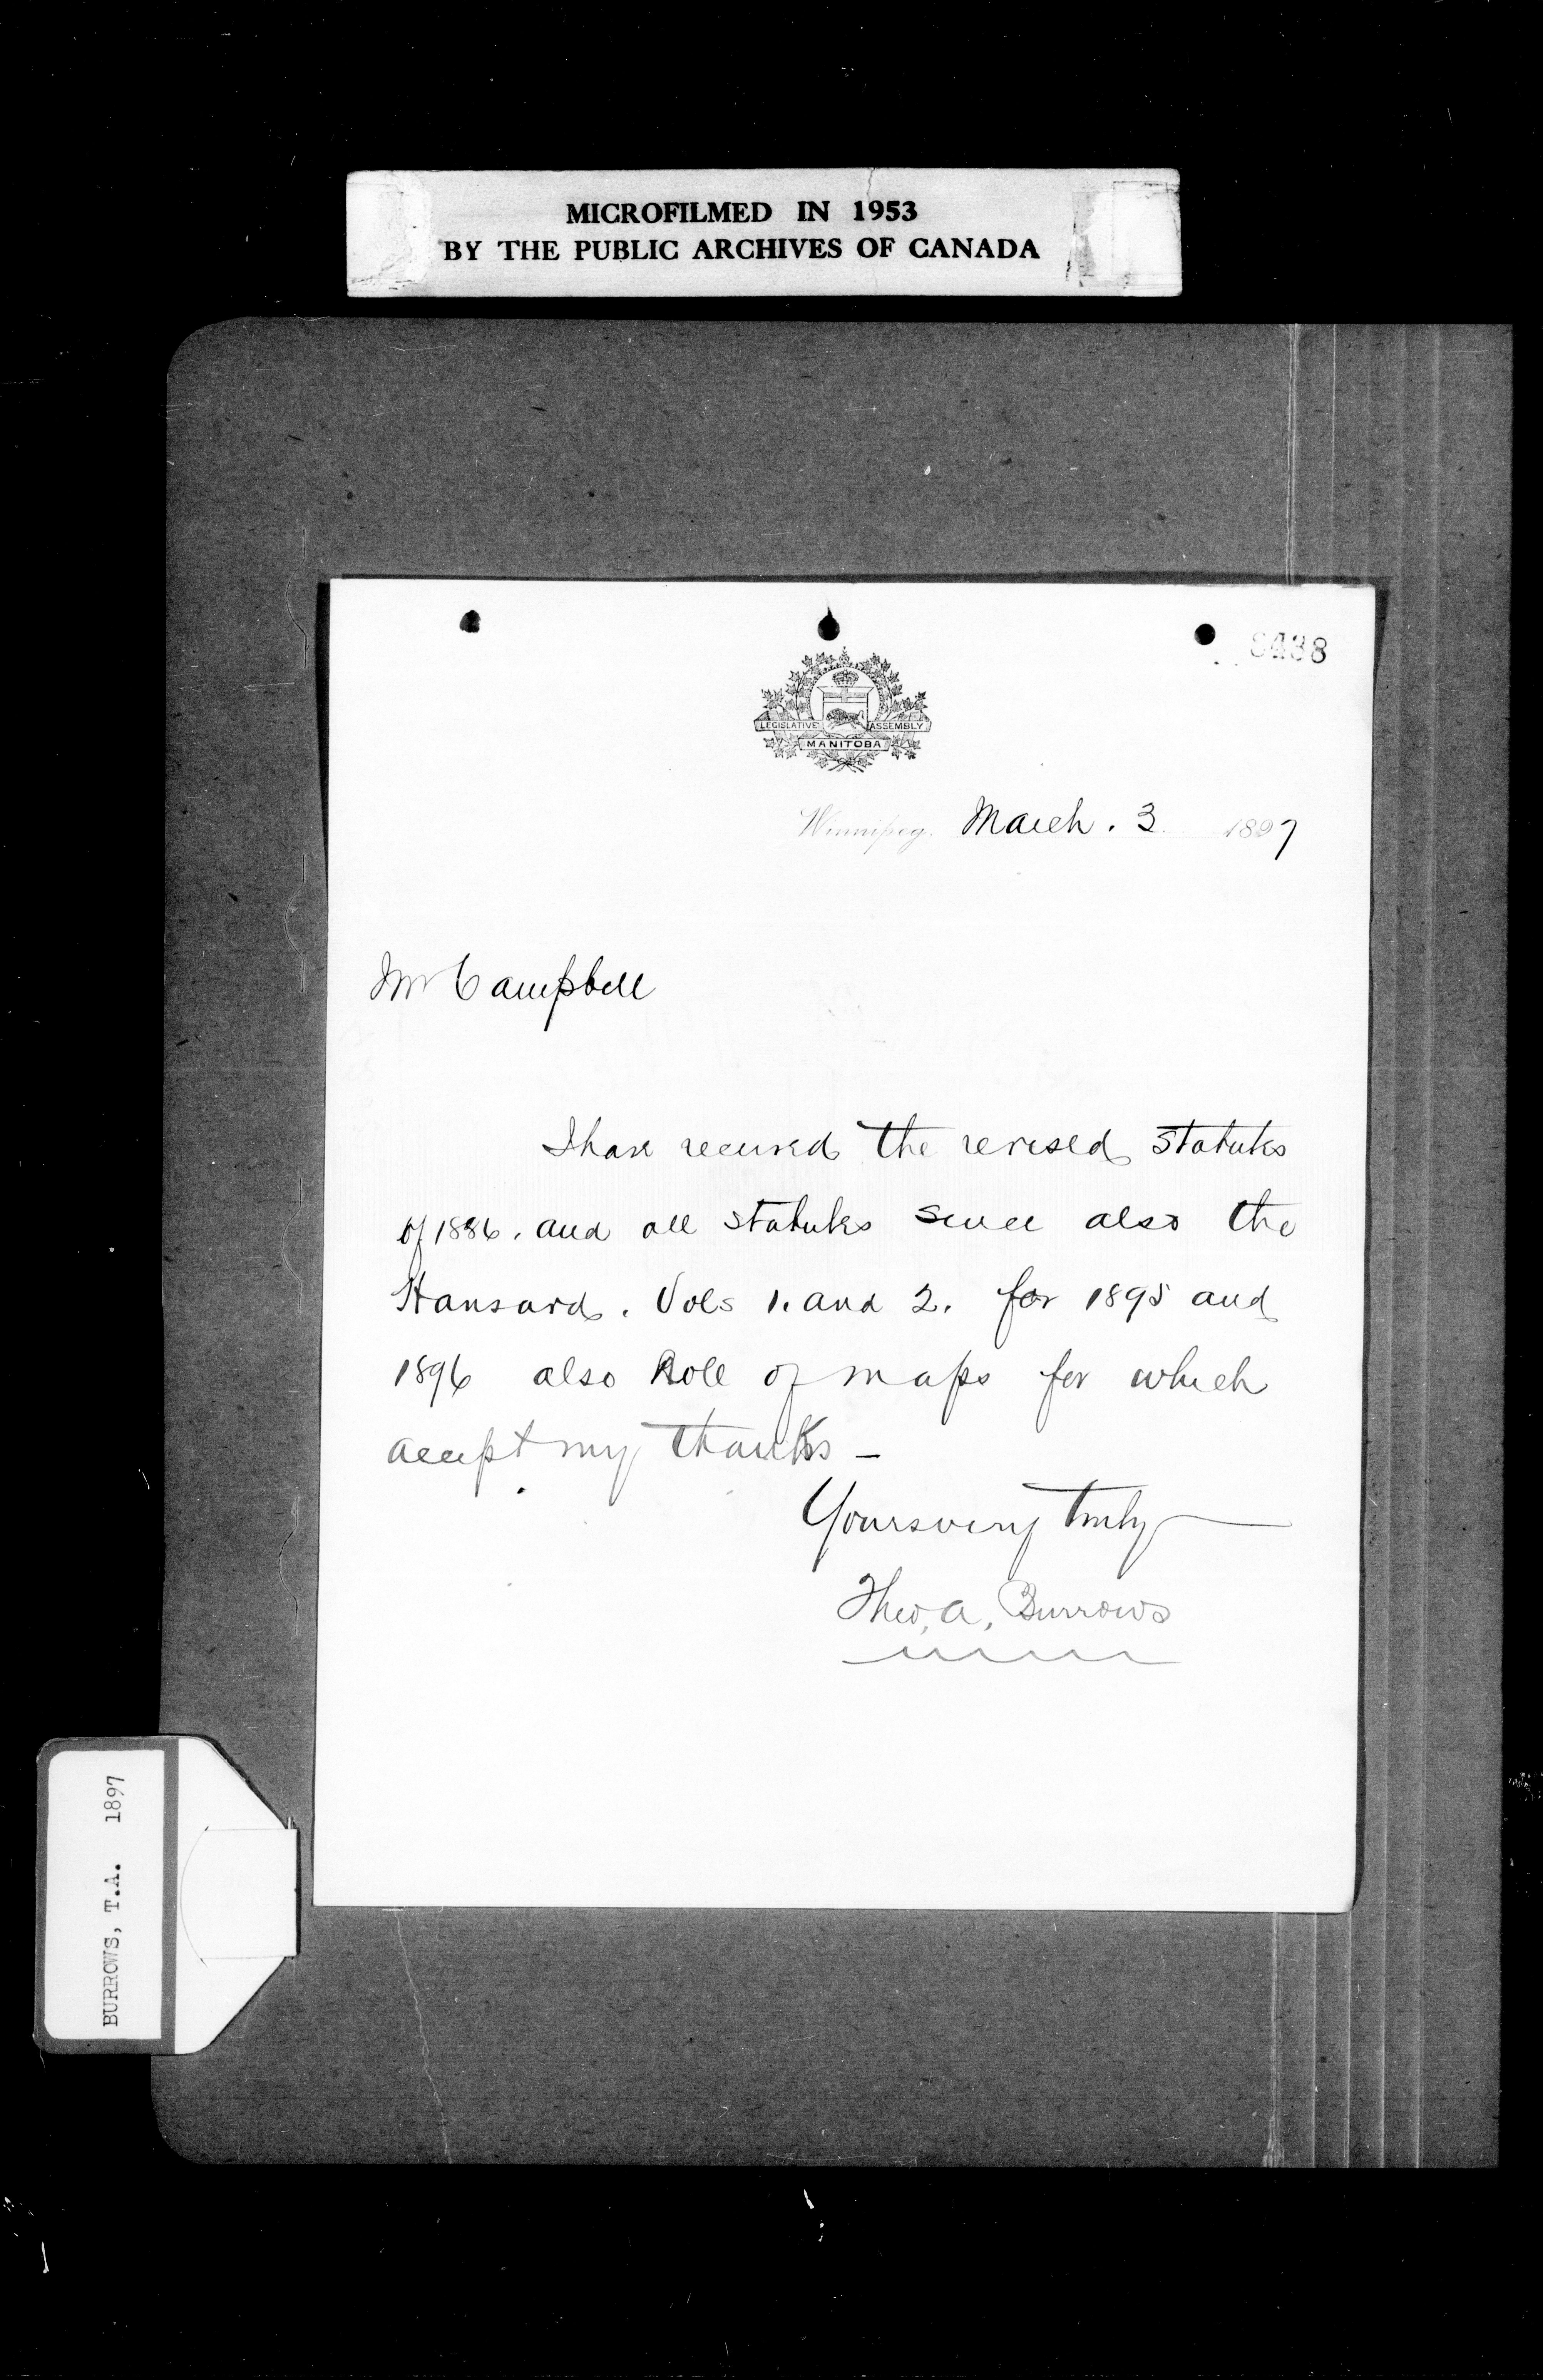 MICROFILMED IN 1953
BY THE PUBLIC ARCHIVES OF CANADA
LEGISLATIVE ASSEMBLY
MANITOBA
Winnipeg, March. 3 1897
Mr Campbell
I have received the revised Statutes
of 1886. and all statutes since also the
Hansard. Vols 1. and 2. for 1895 and
1896 also Roll of maps for which
accept my thanks –
Yours very truly
Theo. A. Burrows
BURROWS, T.A. 1897